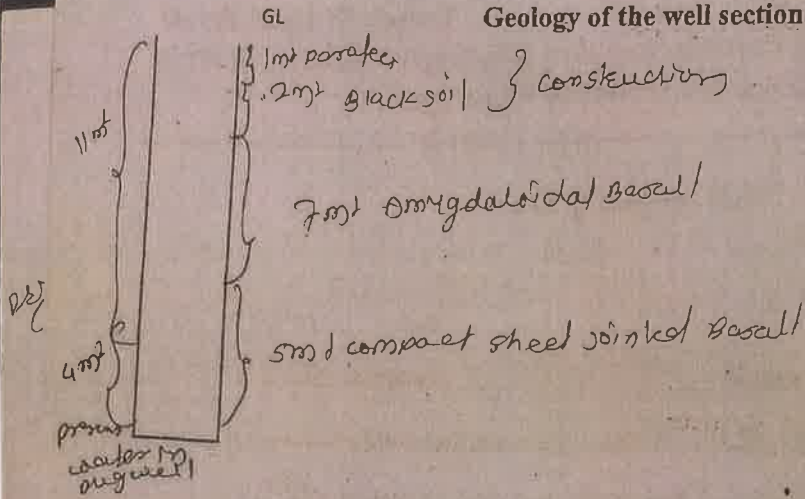 GL
Geology of the well section
1mt parafet
.2mt Black soil } construction
11 mt
7mt Amygdaloidal Basalt
5mt compact sheet jointed Basalt
4 mt
present
water in
dugwell